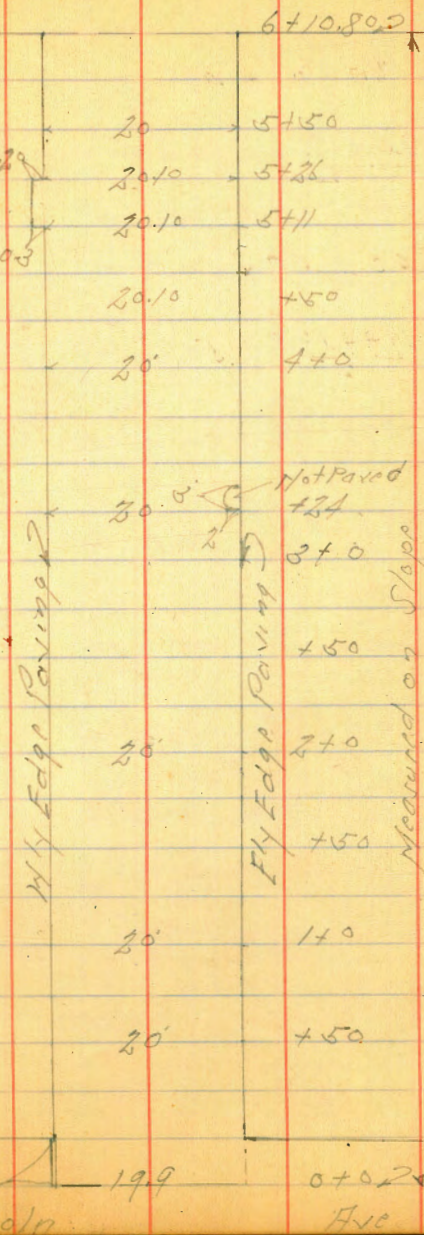 6+10.80
20 5+50
20.10 5+26
20.10 5+11
20.10 +50
20' 4+0
Not Paved
20 3' 2' +24
3+0
+50
20' 2+0
+50
20' 1+0
20' +50
19.9 0+0
Ave
Wly Edge Paving
Ely Edge Paving
Measured on Slope